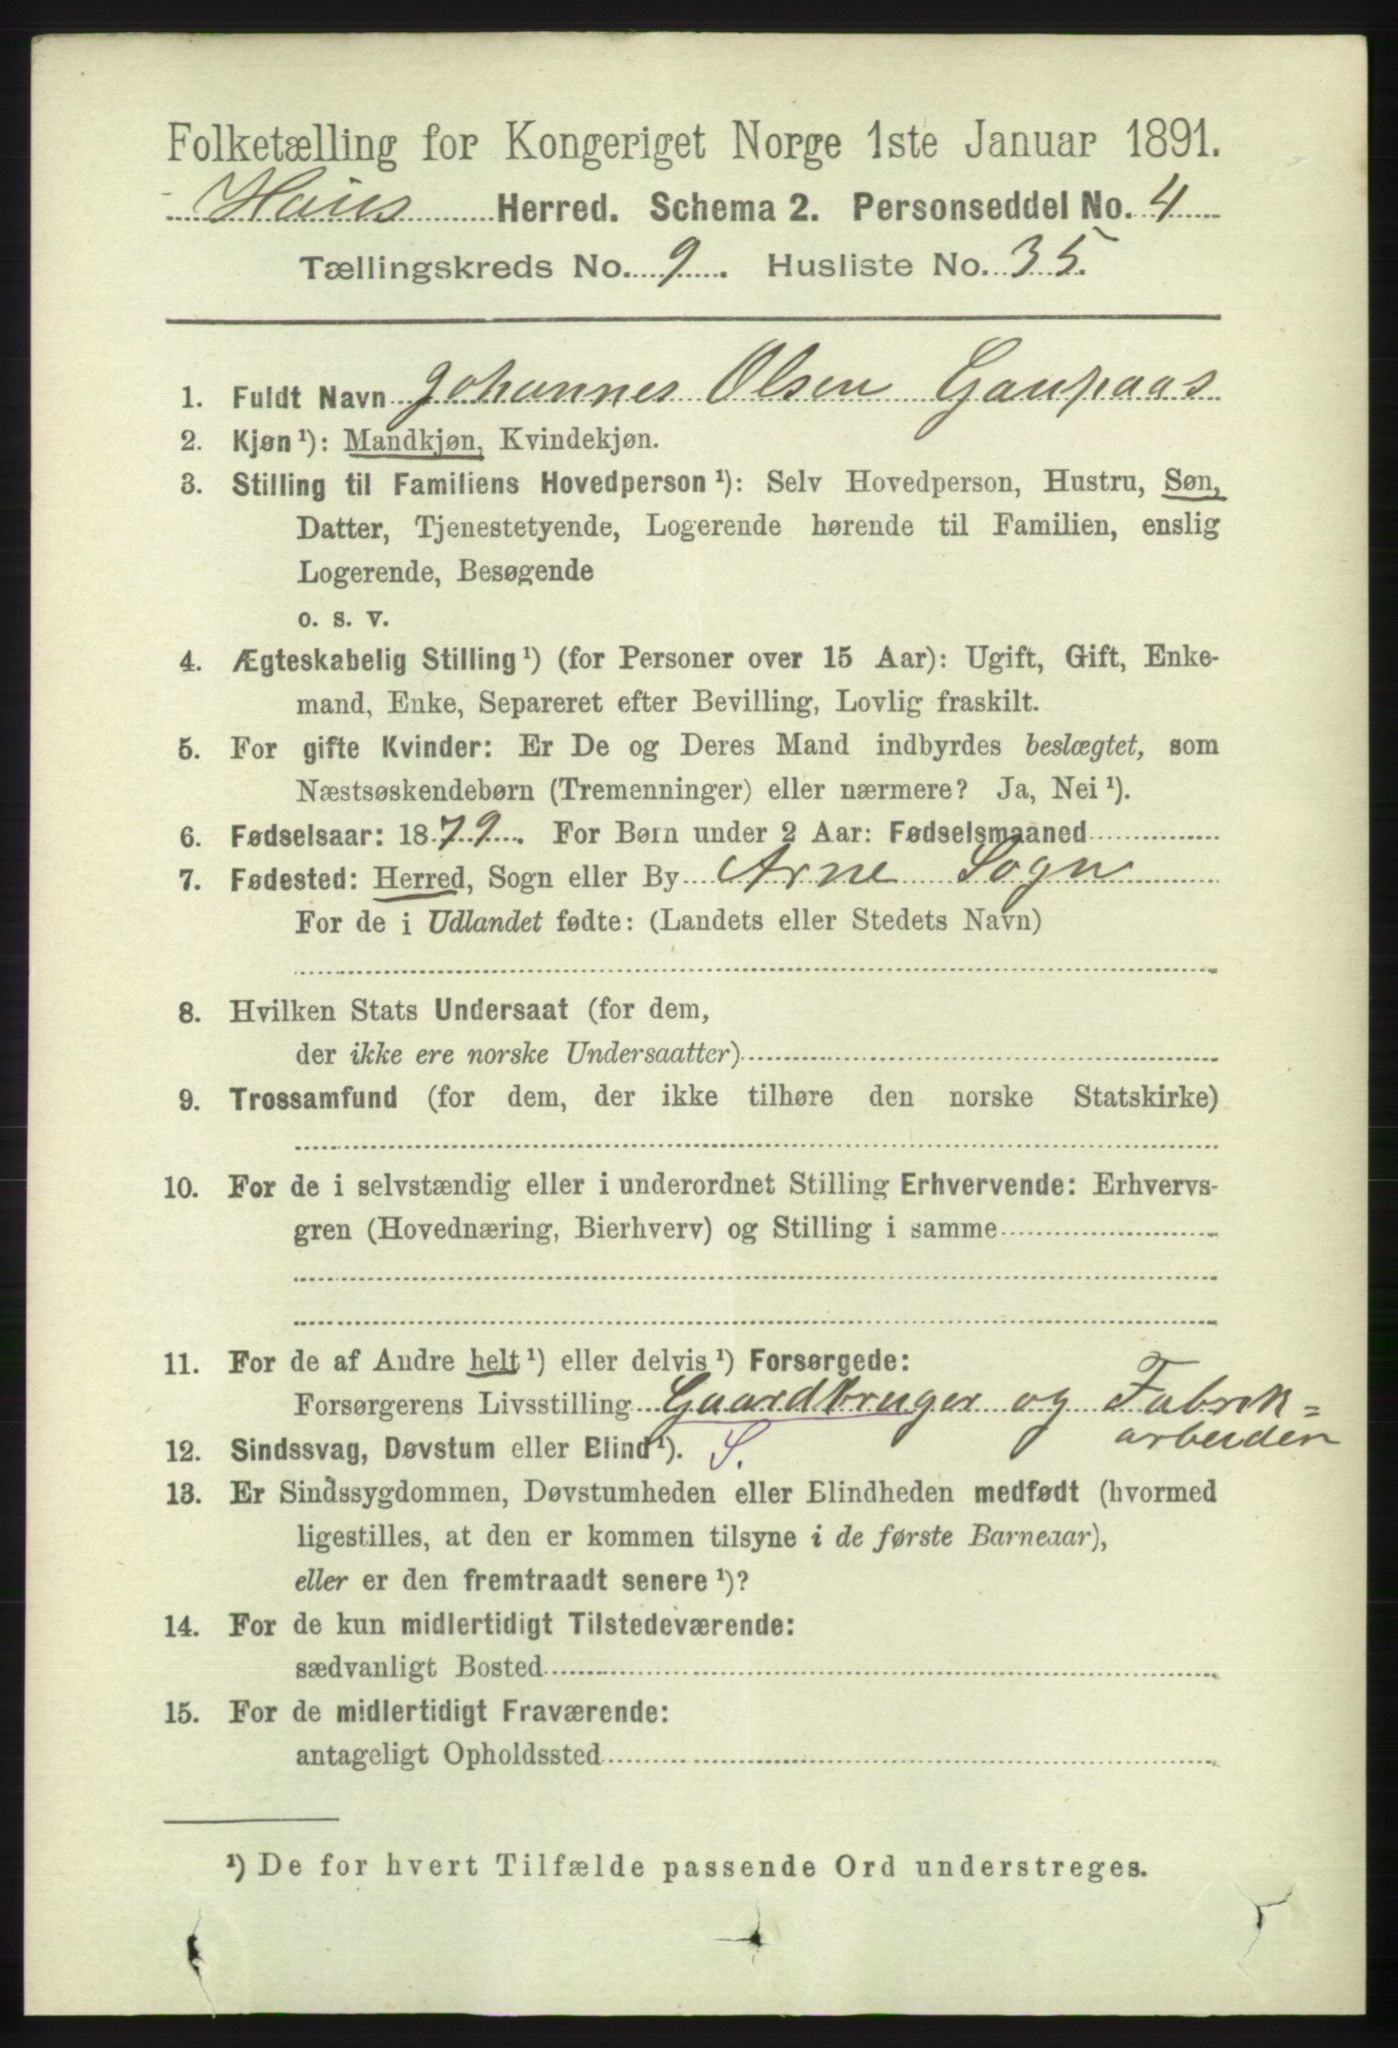 Folketælling for Kongeriget Norge 1ste Januar 1891.
Haus Herred. Schema 2. Personseddel No. 4
Tællingskreds No. 9. Husliste No. 35.
1. Fuldt Navn Johannes Olsen Gaupaas
2. Kjøn¹): Mandkjøn, Kvindekjøn.
3. Stilling til Familiens Hovedperson¹): Selv Hovedperson, Hustru, Søn,
Datter, Tjenestetyende, Logerende hørende til Familien, enslig
Logerende, Besøgende
o. s. v.
4. Ægteskabelig Stilling¹) (for Personer over 15 Aar): Ugift, Gift, Enke-
mand, Enke, Separeret efter Bevilling, Lovlig fraskilt.
5. For gifte Kvinder: Er De og Deres Mand indbyrdes beslægtet, som
Næstsøskendebørn (Tremenninger) eller nærmere? Ja, Nei¹).
6. Fødselsaar: 1879. For Børn under 2 Aar: Fødselsmaaned
7. Fødested: Herred, Sogn eller By Arne Sogn
For de i Udlandet fødte: (Landets eller Stedets Navn)
8. Hvilken Stats Undersaat (for dem,
der ikke ere norske Undersaatter)
9. Trossamfund (for dem, der ikke tilhøre den norske Statskirke)
10. For de i selvstændig eller i underordnet Stilling Erhvervende: Erhvervs-
gren (Hovednæring, Bierhverv) og Stilling i samme
11. For de af Andre helt¹) eller delvis¹) Forsørgede:
Forsørgerens Livsstilling Gaardbruger og Fabrik=
arbeider
12. Sindssvag, Døvstum eller Blind¹). S.
13. Er Sindssygdommen, Døvstumheden eller Blindheden medfødt (hvormed
ligestilles, at den er kommen tilsyne i de første Barneaar),
eller er den fremtraadt senere¹)?
14. For de kun midlertidigt Tilstedeværende:
sædvanligt Bosted
15. For de midlertidigt Fraværende:
antageligt Opholdssted
¹) De for hvert Tilfælde passende Ord understreges.